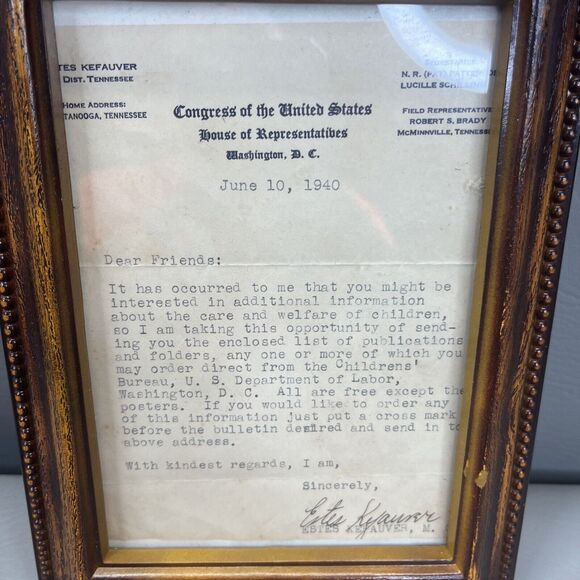 TES KEFAUVER
DIST. TENNESSEE
HOME ADDRESS:
TANOOGA, TENNESSEE
N. R. (PAT) PATTERSON
LUCILLE
FIELD REPRESENTATIVE
ROBERT S. BRADY
MCMINNVILLE, TENNESS
Congress of the United States
House of Representatives
Washington, D. C.
June 10, 1940
Dear Friends:
It has occurred to me that you might be
interested in additional information
about the care and welfare of children,
so I am taking this opportunity of send-
ing you the enclosed list of publications
and folders, any one or more of which you
may order direct from the Childrens'
Bureau, U. S. Department of Labor,
Washington, D. C. All are free except the
posters. If you would like to order any
of this information just put a cross mark
before the bulletin desired and send in to
above address.
With kindest regards, I am,
Sincerely,
Estes Kefauver
ESTES KEFAUVER, M.